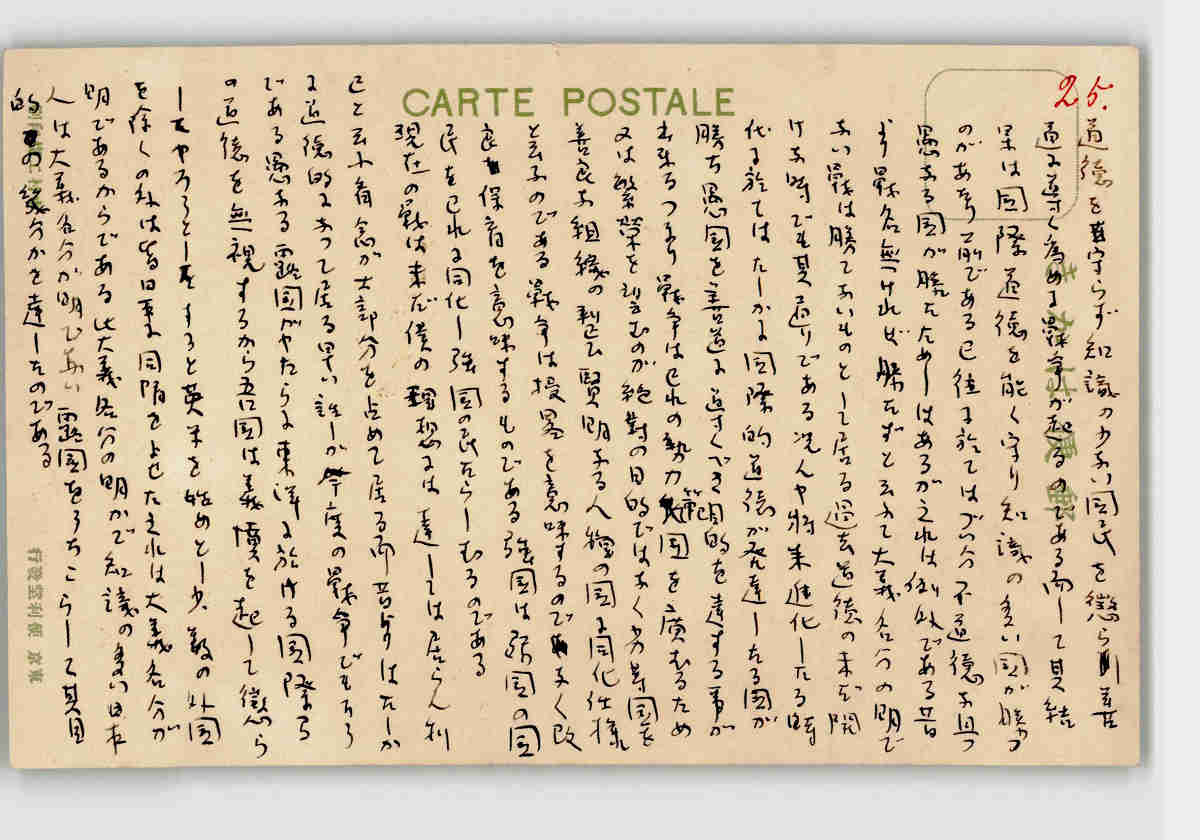 CARTE POSTALE
25.
道徳を守らず知識の少ない国民を懲らし善
道に導く為めに戦争が起るのである而して其結
果は国際道徳を能く守り知識の多い国が勝つ
のがあたり前である已往に於てはづい分不道徳な且つ
愚なる国が勝たためしはあるが之れは例外である昔
より戦名無ければ勝たずと云ふて大義名分の明で
ない戦は勝てないものとして居る過去道徳の未だ開
けな時でも其通りである况んや将来進化したる時
代に於てはたしかに国際的道徳が発達したる国が
勝ち愚国を善道に導くべき目的を達する事が
出来るつまり戦争は己れの勢力範囲を広むるため
又は繁栄を望むのが絶対の目的ではなく劣等国を
善良な組織の製正賢明なる人物の国に同化仕様
と云ふのである戦争は侵畧を意味するのでなく改
良保育を意味するものである強国は弱国の国
民を己れに同化し強国の民たらしむるのである
現在の戦は未だ僕の理想には達しては居らん利
己と云ふ観念が大部分を占めて居る而昔よりはたしか
に道徳的になって居る早い話しが今度の戦争でもそう
である愚なる露国がやたらに東洋に於ける国際
の道徳を無視するから吾国は義憤を起して懲ら
してやろうとすると英米を始めとし少数の外国
を除くの外は皆日本に同情をよせた之れは大義名分が
明であるからである此大義名分の明かで知識の多い日本
人は大義名分が明でない露国をうちこらして其目
的の幾分かを達したのである
郵便はかき
東京 便利堂発行